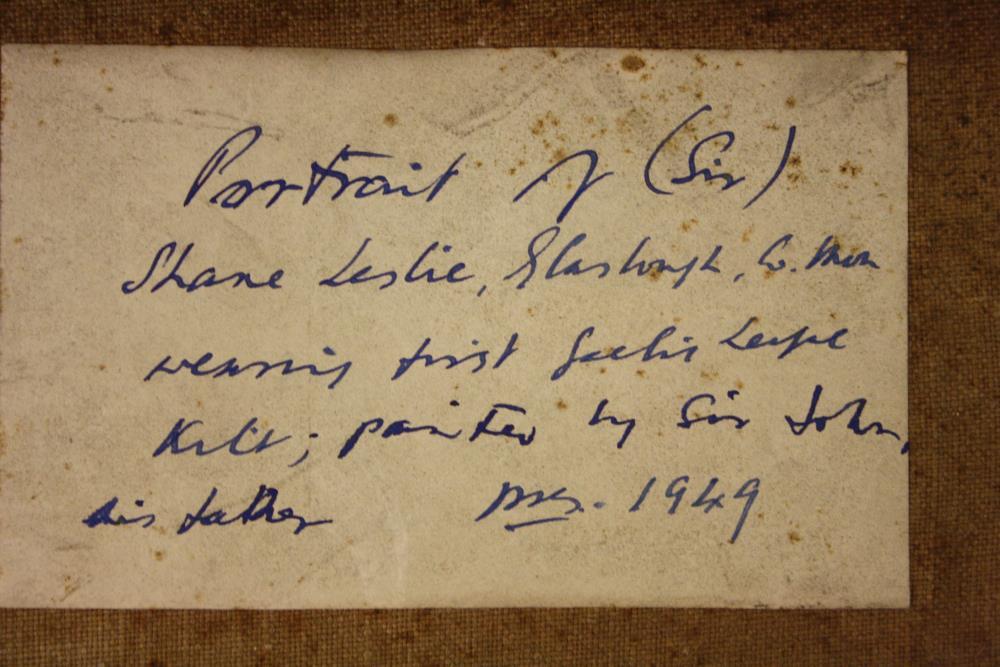 Portrait of (Sir)
Shane Leslie, Glaslough, Co. Mon
wearing first Gaelic League
Kilt; painted by Sir John,
his father 1949